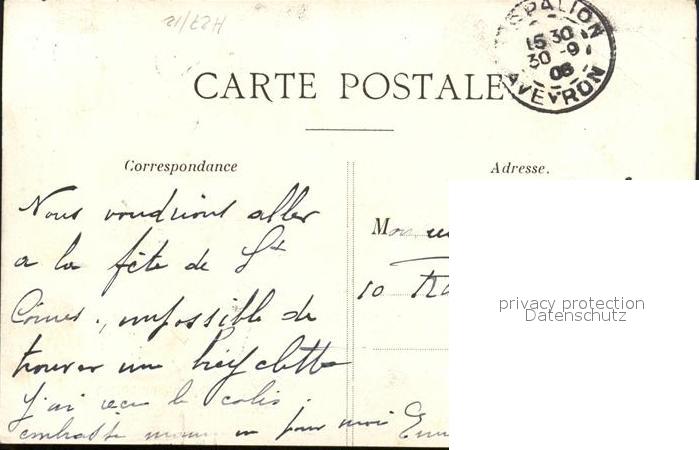 CARTE POSTALE
ESPALION
15 30
30 -9
08
AVEYRON
Correspondance
Adresse.
Nous voudrions aller
a la fête de St
Cômes., impossible de
trouver une bicyclette
J'ai reçu le colis.
embrasse maman pour moi
10
privacy protection
Datenschutz